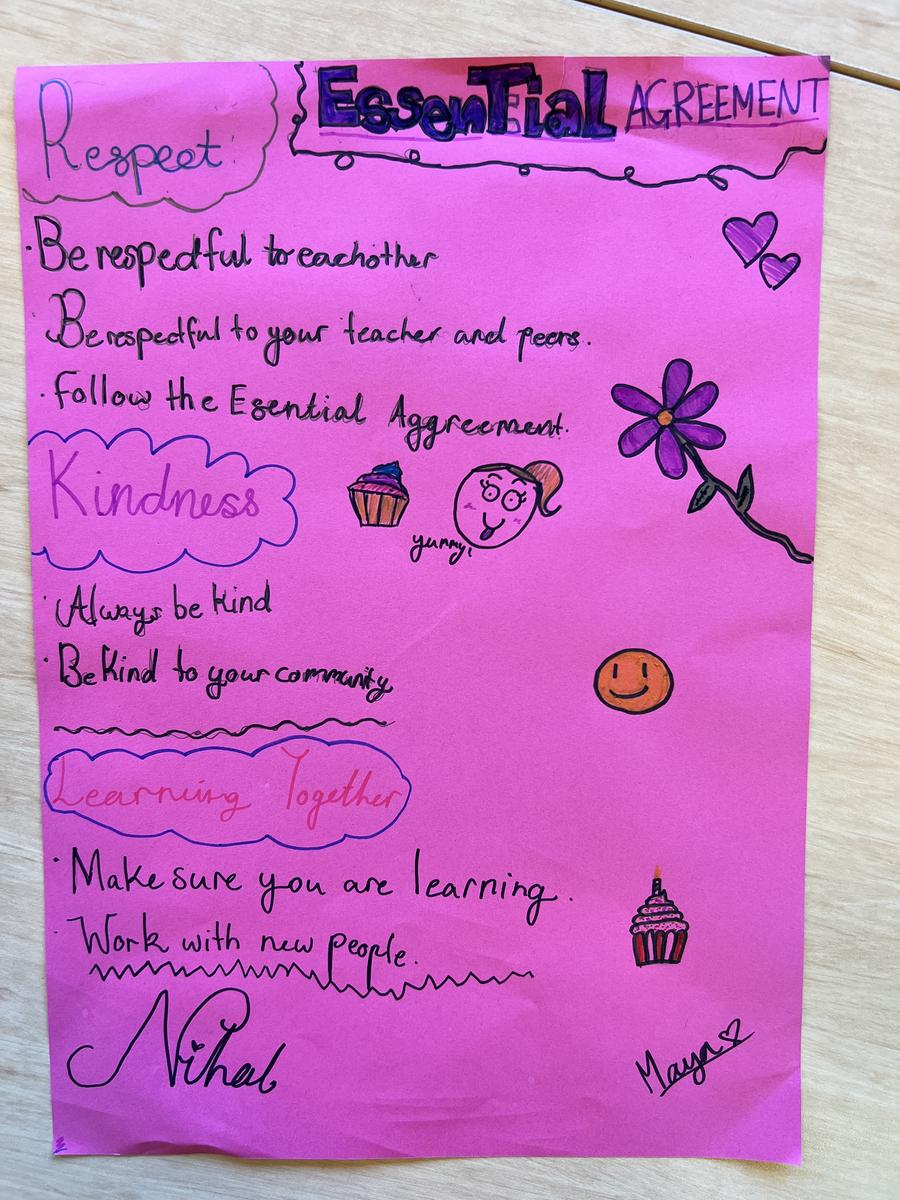 EssenTial AGREEMENT
Respect
· Be respectful to eachother
· Be respectful to your teacher and peers.
· Follow the Esential Aggreement.
Kindness
yummy!
· Always be kind
· Be Kind to your community
Learning Together
· Make sure you are learning.
· Work with new people.
Nihal
Maya